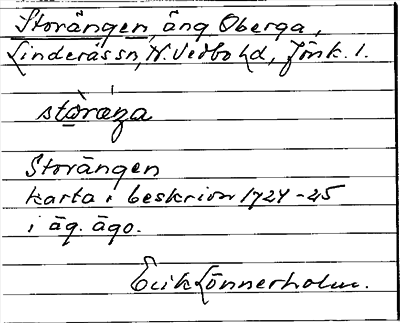 Storängen, äng Oberga,
Linderås sn, N. Vedbo hd, Jönk. l.
Storängen
karta i beskrivn 1724-25
i äg. ägo.
Erik Lönnerholm.